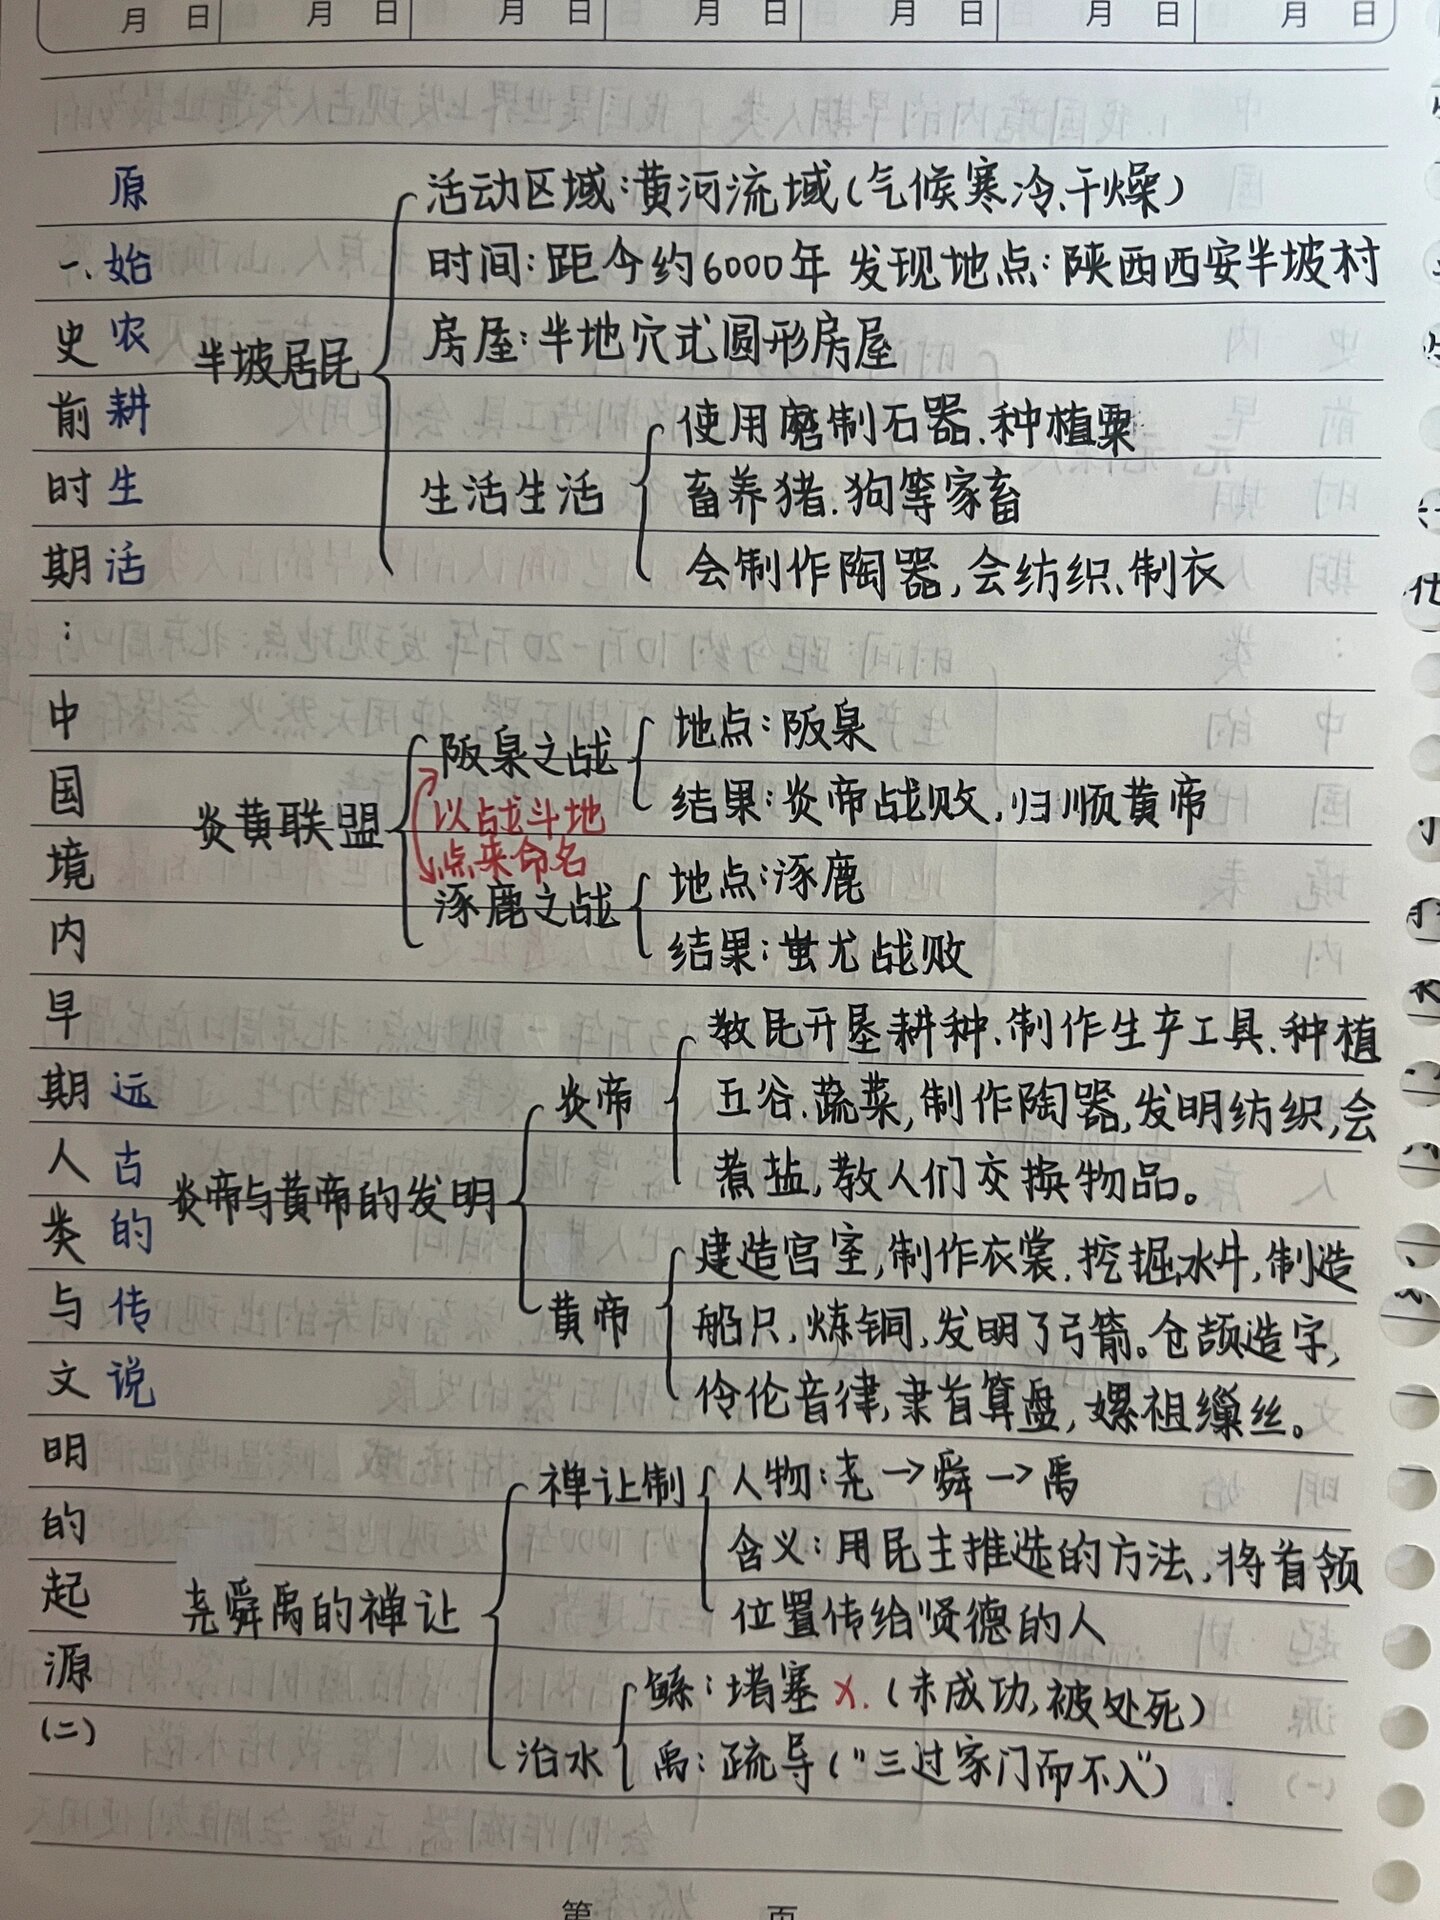 月 日 月 日 月 日 月 日 月 日 月 日 月 日
一、史前时期：中国境内早期人类与文明的起源（二）
原始农耕生活
半坡居民
活动区域：黄河流域（气候寒冷、干燥）
时间：距今约6000年 发现地点：陕西西安半坡村
房屋：半地穴式圆形房屋
生活生活
使用磨制石器、种植粟
畜养猪、狗等家畜
会制作陶器，会纺织、制衣
远古的传说
炎黄联盟
阪泉之战
地点：阪泉
结果：炎帝战败，归顺黄帝
以战斗地
点来命名
涿鹿之战
地点：涿鹿
结果：蚩尤战败
炎帝与黄帝的发明
炎帝
教民开垦耕种、制作生产工具、种植
五谷、蔬菜，制作陶器，发明纺织，会
煮盐，教人们交换物品。
黄帝
建造宫室，制作衣裳、挖掘水井，制造
船只，炼铜，发明了弓箭。仓颉造字，
伶伦音律，隶首算盘，嫘祖缫丝。
尧舜禹的禅让
禅让制
人物：尧→舜→禹
含义：用民主推选的方法，将首领
位置传给贤德的人
治水
鲧：堵塞 ×.（未成功，被处死）
禹：疏导（“三过家门而不入”）
第 页